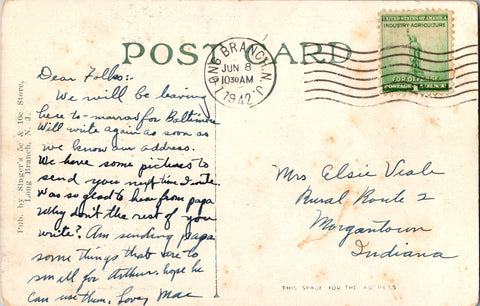 POST CARD
LONG BRANCH, N.J.
JUN 8
10 30 AM
1942
UNITED STATES OF AMERICA
INDUSTRY AGRICULTURE
FOR DEFENSE
Pub. by Singer's 5c & 10c Store,
Long Branch, N. J.
Dear Folks:-
We will be leaving
here to-marrow for Baltimore
Will write again as soon as
we know our address.
We have some pictures to
send you next time I write.
Was so glad to hear from papa
Why don't the rest of you
write? Am sending papa
some things that are to
small for Arthur, hope he
can use them. Love, Mae
Mrs Elsie
Rural Route 2
Morgantown
Indiana
THIS SPACE FOR THE ADDRESS